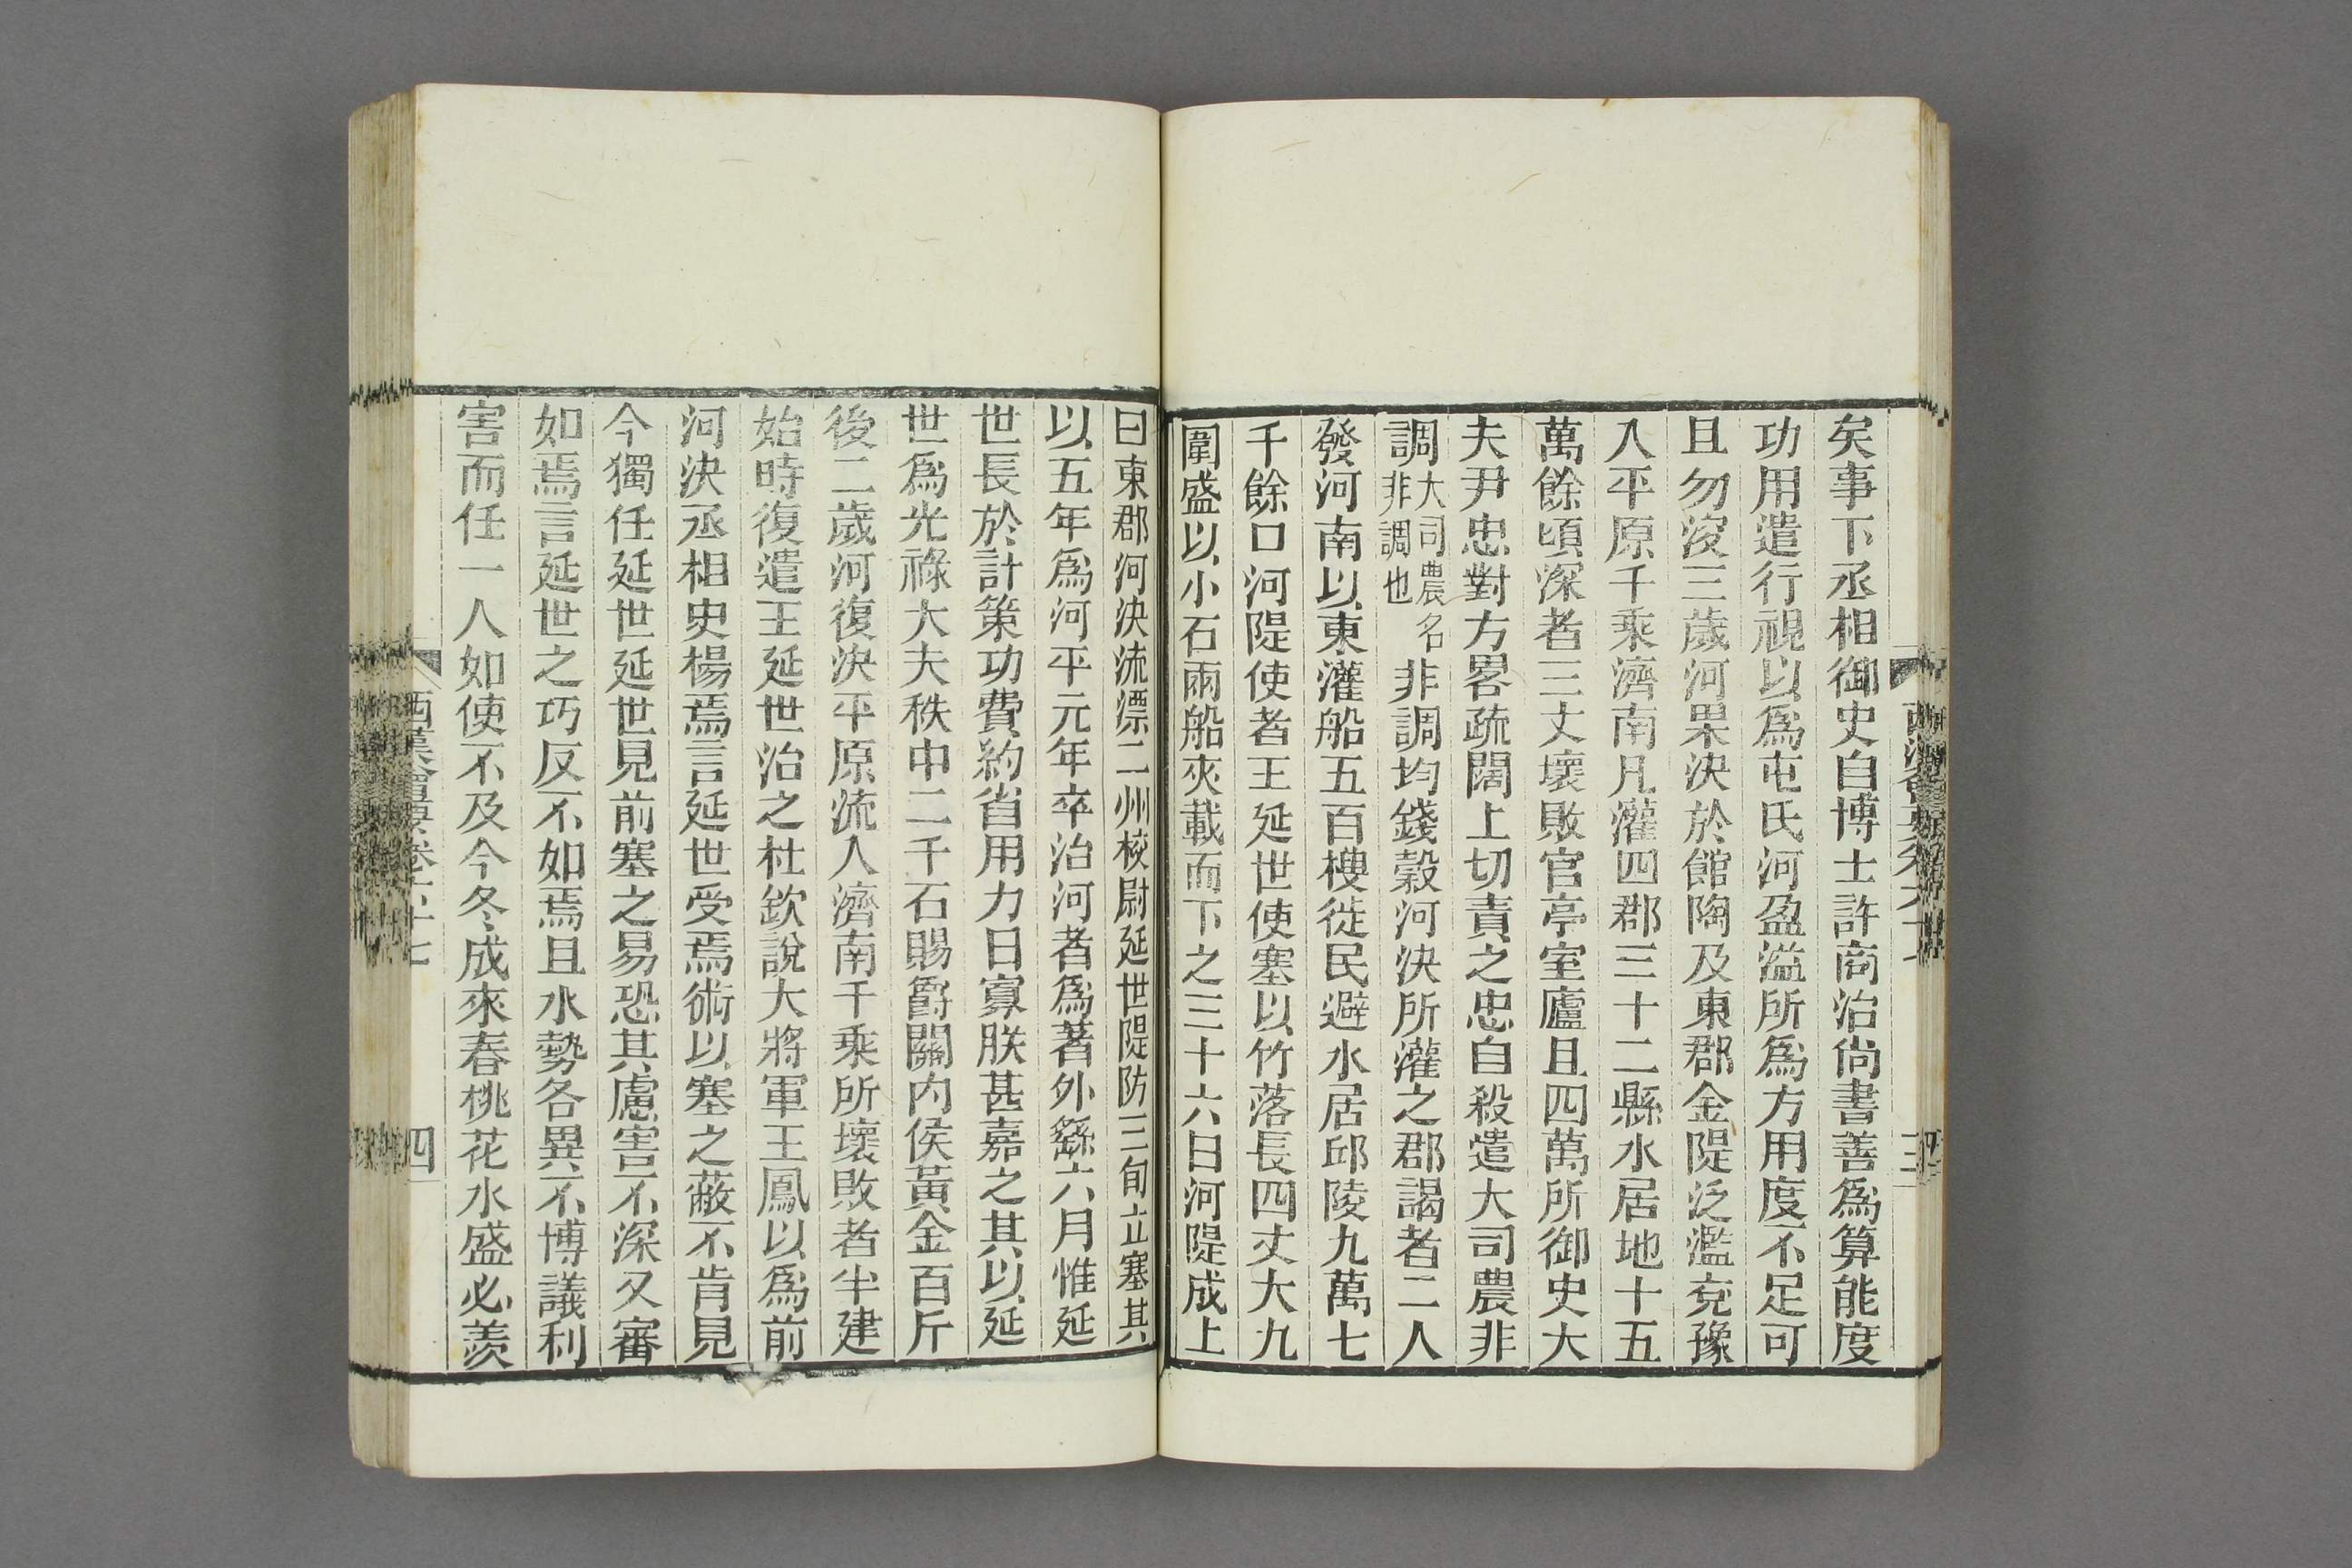 矣事下丞相御史白博士許商治尙書善爲算能度
功用遣行視以爲屯氏河盈溢所爲方用度不足可
且勿浚三歲河果決於館陶及東郡金隄泛濫兗豫
入平原千乘濟南凡灌四郡三十二縣水居地十五
萬餘頃深者三丈壞敗官亭室廬且四萬所御史大
夫尹忠對方畧疏闊上切責之忠自殺遣大司農非
調大司農名非調也非調均錢穀河決所灌之郡謁者二人
發河南以東灌船五百㮴徙民避水居邱陵九萬七
千餘口河隄使者王延世使塞以竹落長四丈大九
圍盛以小石兩船夾載而下之三十六日河隄成上
曰東郡河決流漂二州校尉延世隄防三旬立塞其
以五年爲河平元年卒治河者爲著外繇六月惟延
世長於計策功費約省用力日寡朕甚嘉之其以延
世爲光祿大夫秩中二千石賜爵關內侯黃金百斤
後二歲河復決平原流入濟南千乘所壞敗者半建
始時復遣王延世治之杜欽說大將軍王鳳以爲前
河決丞相史楊焉言延世受焉術以塞之蔽不肯見
今獨任延世延世見前塞之易恐其慮害不深又審
如焉言延世之巧反不如焉且水勢各異不博議利
害而任一人如使不及今冬成來春桃花水盛必羨
西漢會要卷六十七
四